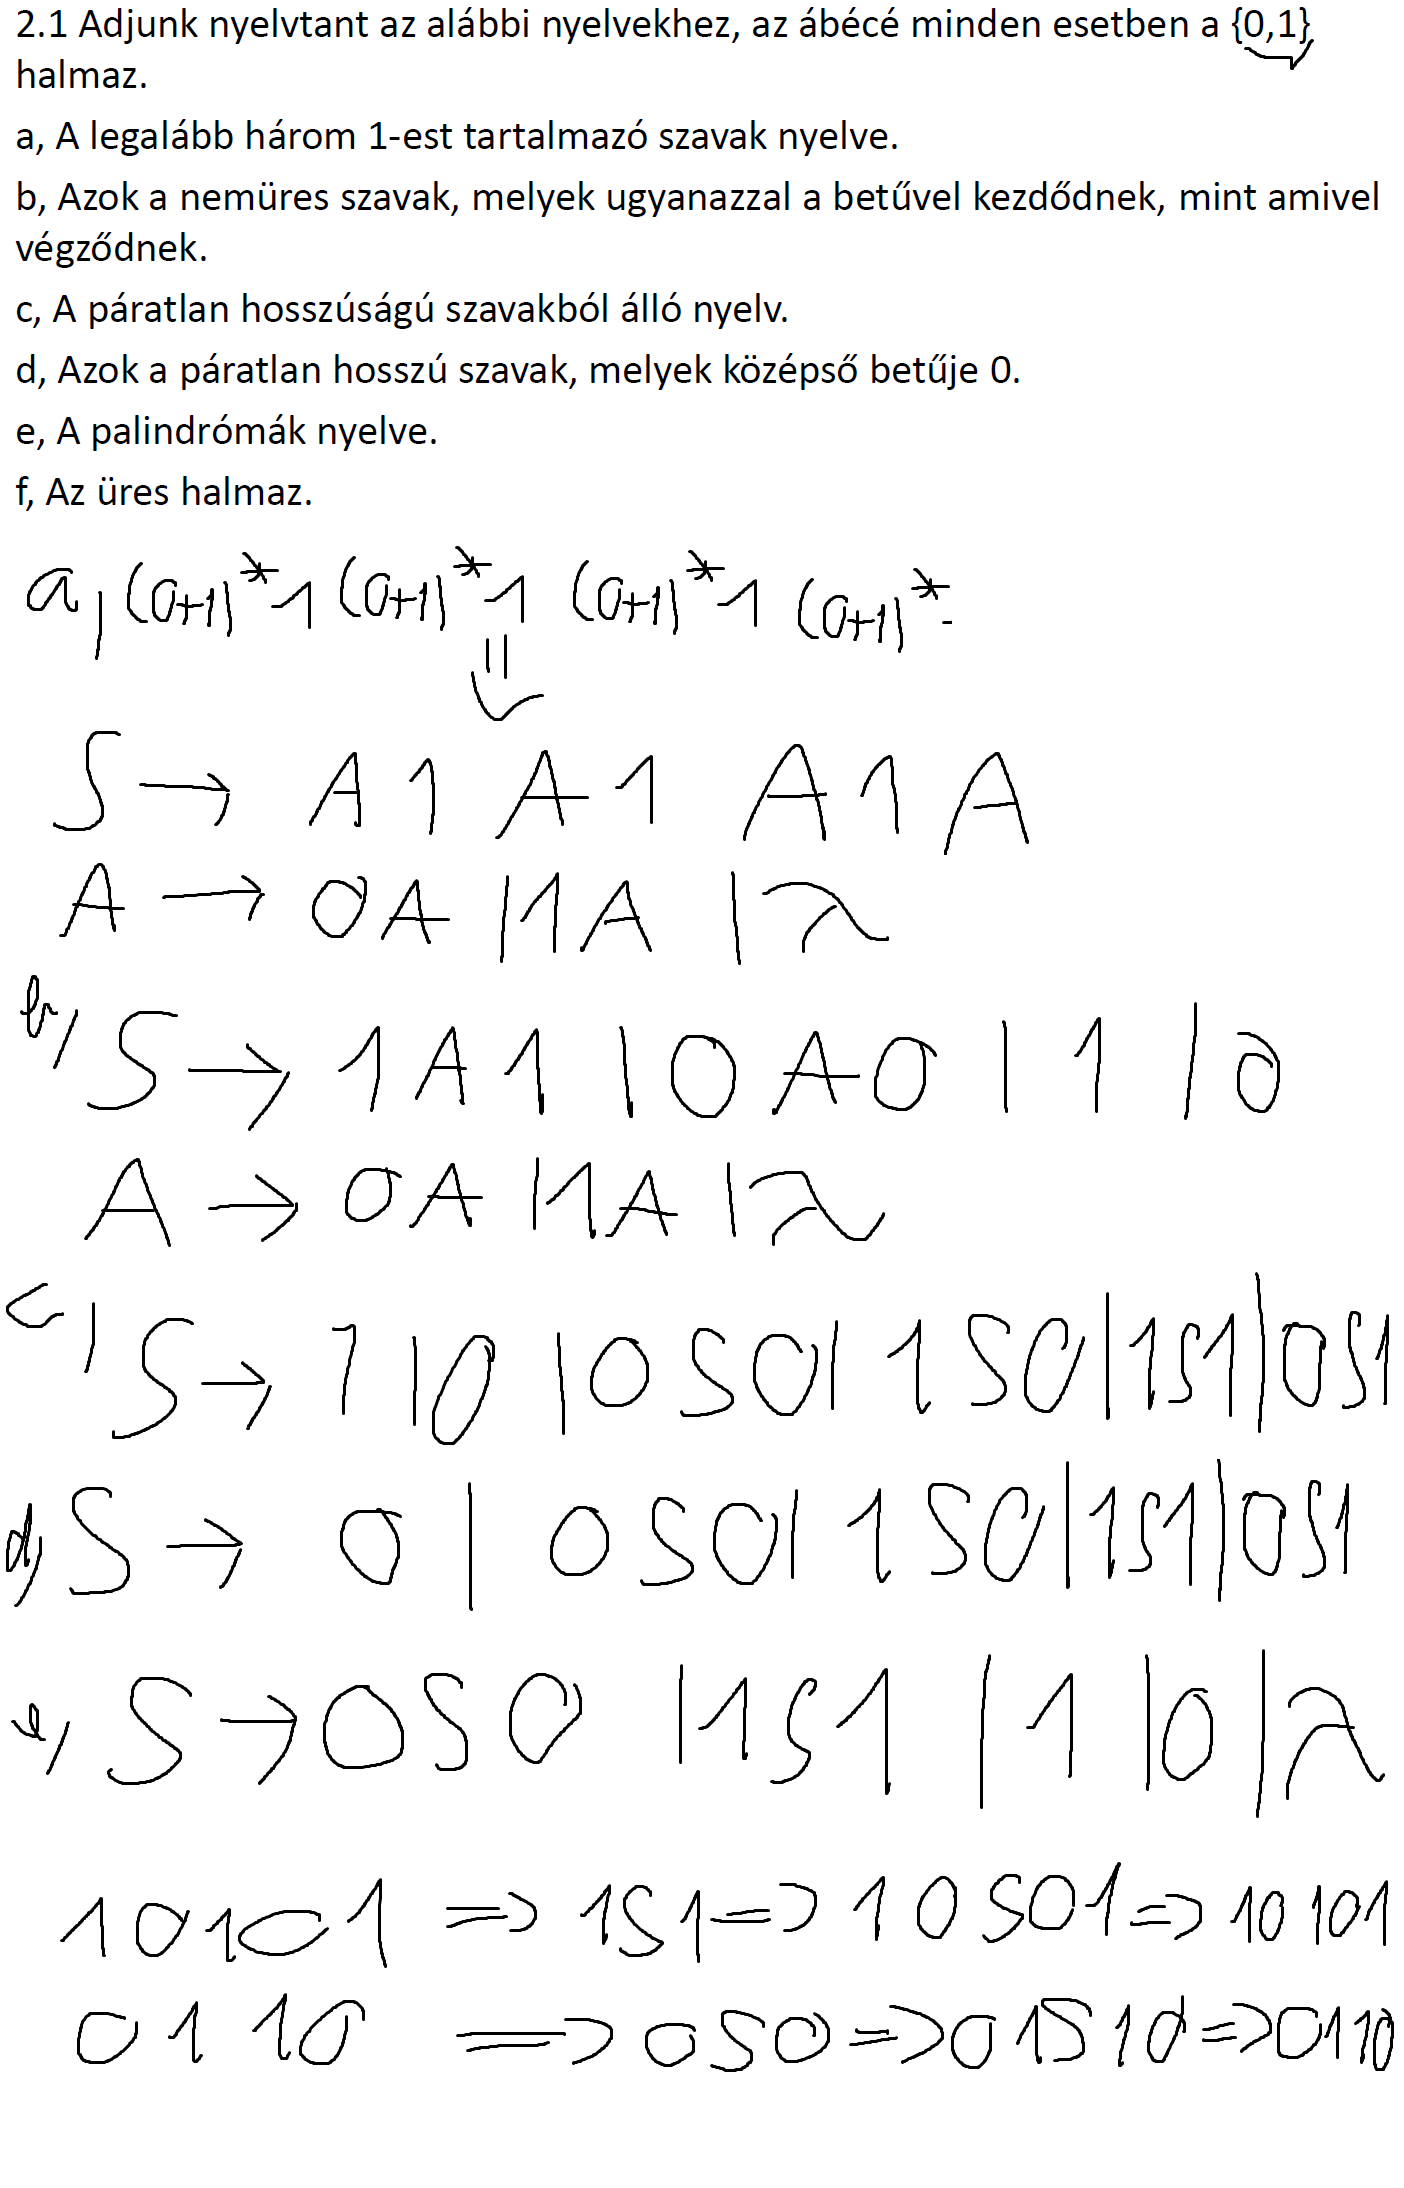 2.1 Adjunk nyelvtant az alábbi nyelvekhez, az ábécé minden esetben a {0,1}
halmaz.
a, A legalább három 1-est tartalmazó szavak nyelve.
b, Azok a nemüres szavak, melyek ugyanazzal a betűvel kezdődnek, mint amivel
végződnek.
c, A páratlan hosszúságú szavakból álló nyelv.
d, Azok a páratlan hosszú szavak, melyek középső betűje 0.
e, A palindrómák nyelve.
f, Az üres halmaz.
a, (0+1)*1 (0+1)*1 (0+1)*1 (0+1)*
⇓
S → A 1 A 1 A 1 A
A → 0A | 1A | λ
b, S → 1A1 | 0A0 | 1 | 0
A → 0A | 1A | λ
c, S → 1 | 0 | 0S0 | 1S0 | 1S1 | 0S1
d, S → 0 | 0S0 | 1S0 | 1S1 | 0S1
e, S → 0S0 | 1S1 | 1 | 0 | λ
10101 ⇒ 1S1 ⇒ 10S01 ⇒ 10101
0110 ⇒ 0S0 ⇒ 01S10 ⇒ 0110